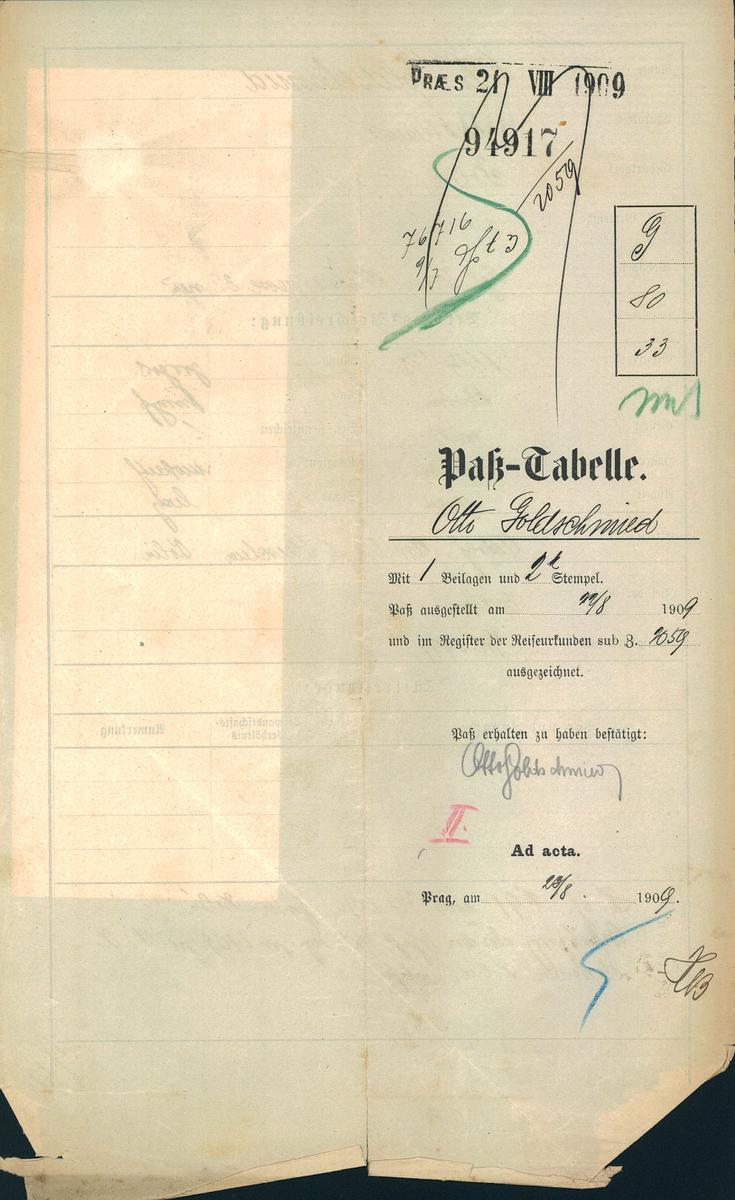 PRÆS 21 VIII 1909
94917
2059
76716
9/7
G
80
33
Paß-Tabelle.
Otto Goldschmied
Mit 1 Beilagen und 2 k Stempel.
Paß ausgestellt am 22/8 1909
und im Register der Reiseurkunden sub Z. 2059
ausgezeichnet.
Paß erhalten zu haben bestätigt:
Otto Goldschmied
II.
Ad acta.
Prag, am 23/8. 1909.